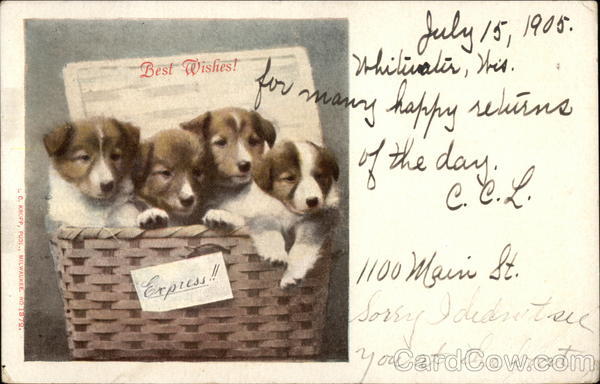 Best Wishes!
July 15, 1905.
Whitewater, Wis.
for many happy returns
of the day.
C. C. L.
Express!!
1100 Main St.
Sorry I didn't see
you at the
CardCow.com
PUB., MILWAUKEE. NO. 1379.